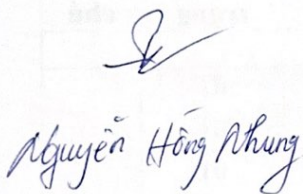 Nguyễn Hồng Nhung